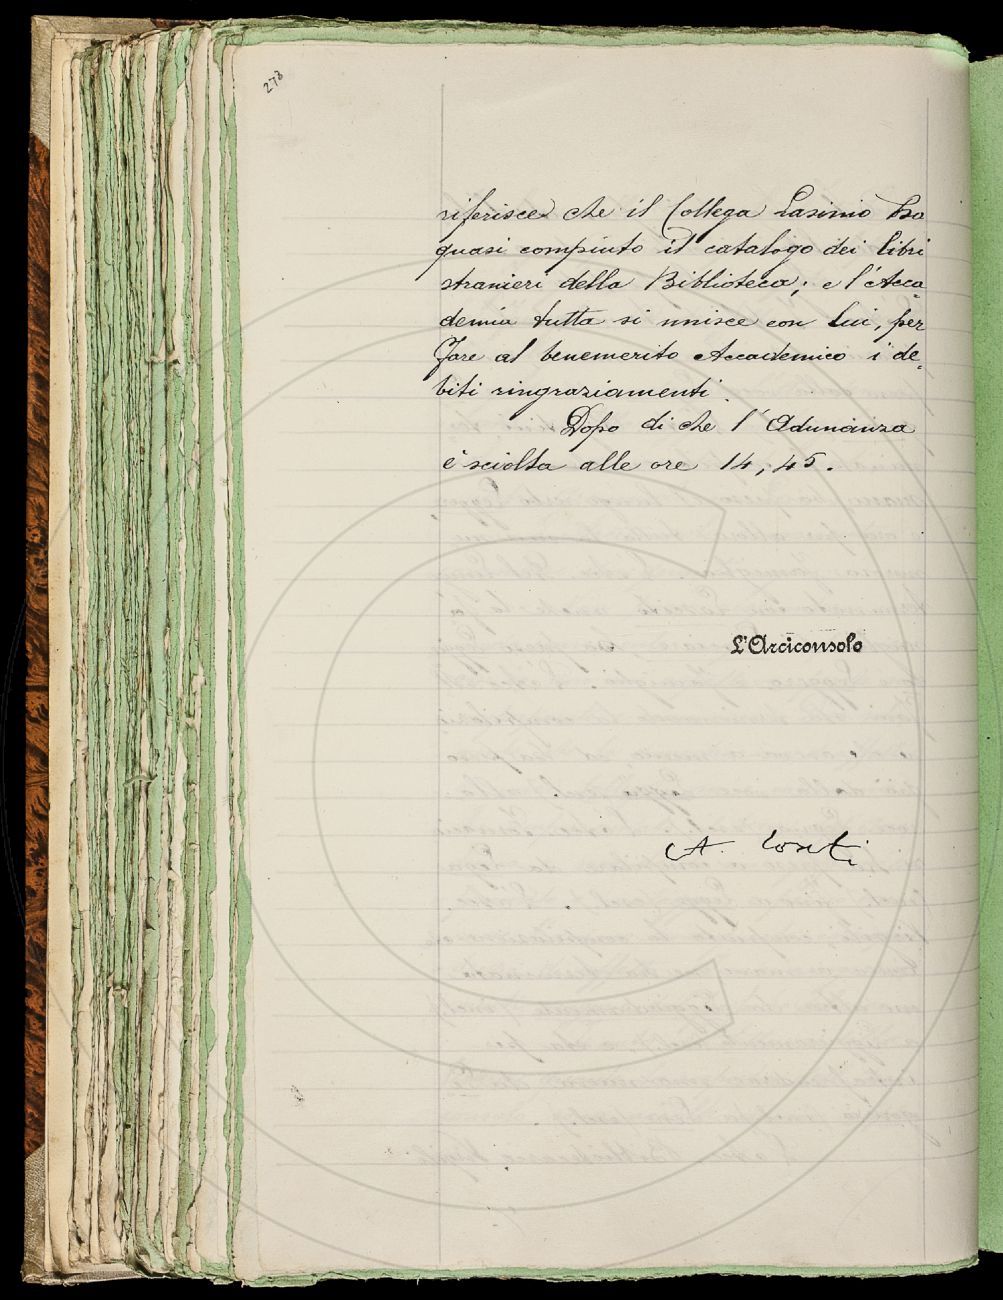 278
riferisce che il Collega Lasinio ha
quasi compiuto il catalogo dei libri
stranieri della Biblioteca; e l'Acca-
demia tutta si unisce con lui, per
fare al benemerito Accademico i de-
biti ringraziamenti.
Dopo di che l'Adunanza
è sciolta alle ore 14,45.
L'Arciconsolo
A. Conti